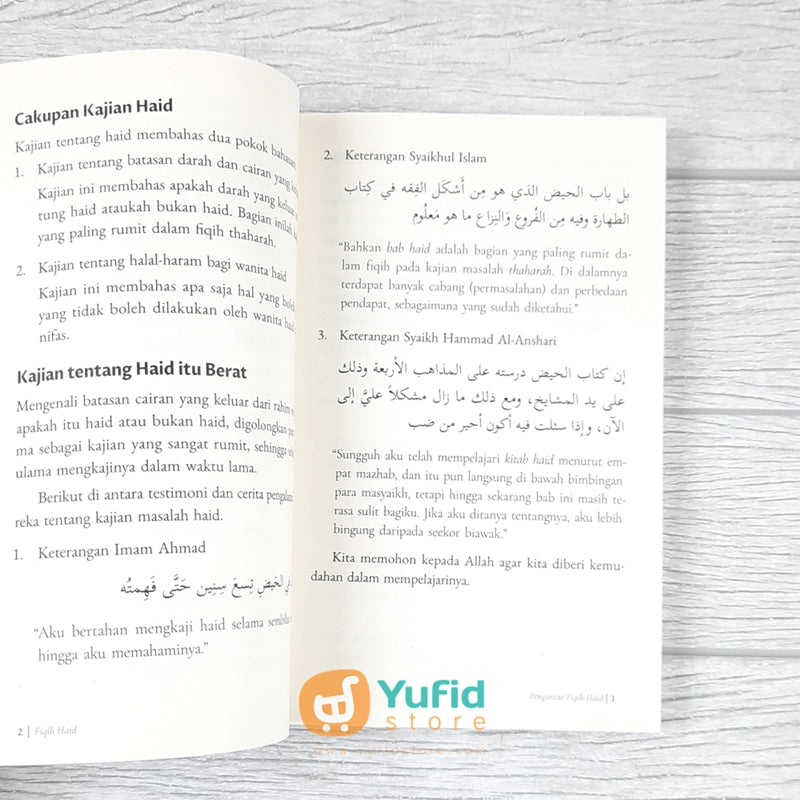 Cakupan Kajian Haid
Kajian tentang haid membahas dua pokok bahasan
1. Kajian tentang batasan darah dan cairan yang
Kajian ini membahas apakah darah yang keluar
tung haid ataukah bukan haid. Bagian inilah
yang paling rumit dalam fiqih thaharah.
2. Kajian tentang halal-haram bagi wanita haid
Kajian ini membahas apa saja hal yang
yang tidak boleh dilakukan oleh wanita
nifas.
Kajian tentang Haid itu Berat
Mengenali batasan cairan yang keluar dari rahim
apakah itu haid atau bukan haid, digolongkan
ma sebagai kajian yang sangat rumit, sehingga
ulama mengkajinya dalam waktu lama.
Berikut di antara testimoni dan cerita
reka tentang kajian masalah haid.
1. Keterangan Imam Ahmad
في الحَيضِ تِسعَ سِنِين حَتَّى فَهِمتُه
“Aku bertahan mengkaji haid selama
hingga aku memahaminya.”
2 | Fiqih Haid
2. Keterangan Syaikhul Islam
بل باب الحيض الذي هو مِن أَشكَل الفِقه في كِتاب
الطهارة وفيه مِن الفُروع وَالنِزاع ما هو مَعلُوم
“Bahkan bab haid adalah bagian yang paling rumit da-
lam fiqih pada kajian masalah thaharah. Di dalamnya
terdapat banyak cabang (permasalahan) dan perbedaan
pendapat, sebagaimana yang sudah diketahui.”
3. Keterangan Syaikh Hammad Al-Anshari
إن كتاب الحيض درسته على المذاهب الأربعة وذلك
على يد المشايخ، ومع ذلك ما زال مشكلاً عليَّ إلى
الآن، وإذا سئلت فيه أكون أحير من ضب
“Sungguh aku telah mempelajari kitab haid menurut em-
pat mazhab, dan itu pun langsung di bawah bimbingan
para masyaikh, tetapi hingga sekarang bab ini masih te-
rasa sulit bagiku. Jika aku ditanya tentangnya, aku lebih
bingung daripada seekor biawak.”
Kita memohon kepada Allah agar kita diberi kemu-
dahan dalam mempelajarinya.
Pengantar Fiqih Haid | 3
Yufid
store
www.yufidstore.com